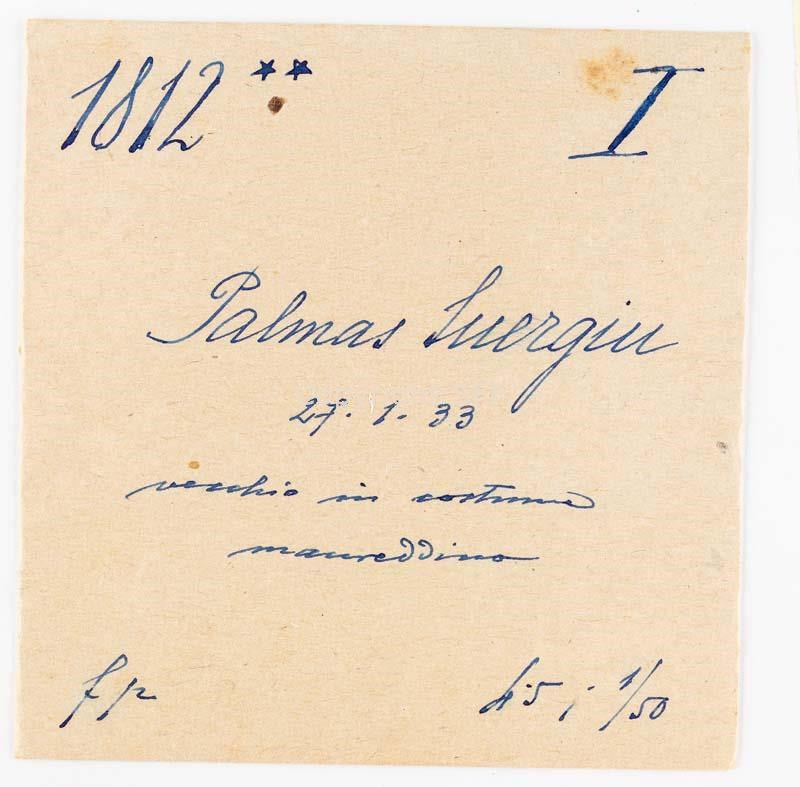 1812 ** I
Palmas Suergiu
27. 1. 33
vecchio in costume
maureddino
fp
4.5 ; 1/50